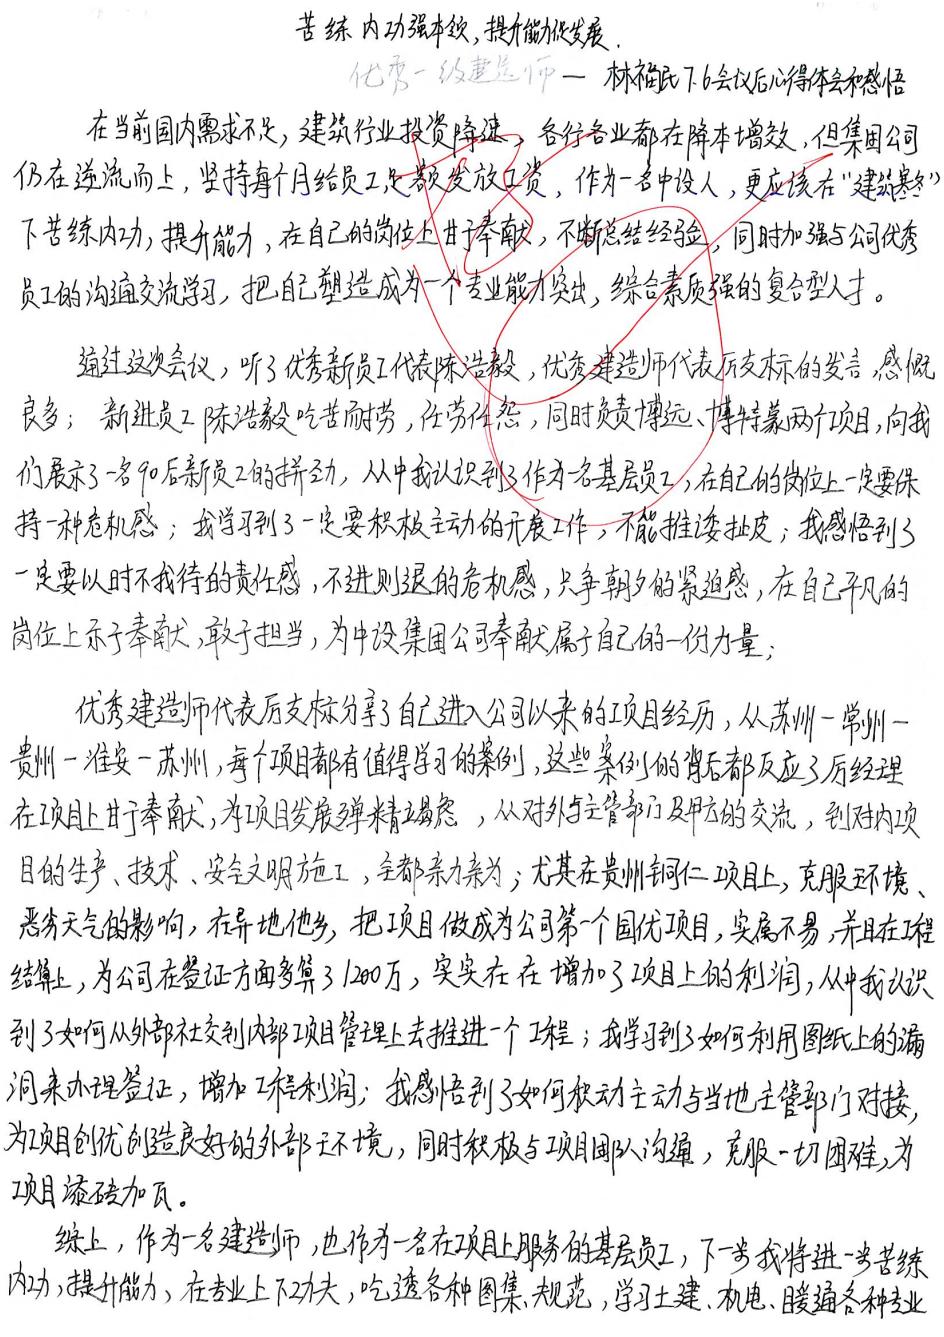 苦练内功强本领,提升能力促发展.
优秀一级建造师 — 林福民7.6会议后心得体会和感悟
在当前国内需求不足,建筑行业投资降速,各行各业都在降本增效,但集团公司
仍在逆流而上,坚持每个月给员工足额发放工资,作为一名中设人,更应该在“建筑寒冬”
下苦练内功,提升能力,在自己的岗位上甘于奉献,不断总结经验,同时加强与公司优秀
员工的沟通交流学习,把自己塑造成为一个专业能力突出,综合素质强的复合型人才。
通过这次会议,听了优秀新员工代表陈浩毅,优秀建造师代表厉支标的发言,感慨
良多;新进员工陈浩毅吃苦而耐劳,任劳任怨,同时负责博远、博特蒙两个项目,向我
们展示了一名90后新员工的拼劲,从中我认识到了作为一名基层员工,在自己的岗位上一定要保
持一种危机感;我学习到了一定要积极主动的开展工作,不能推诿扯皮;我感悟到了
一定要以时不我待的责任感,不进则退的危机感,只争朝夕的紧迫感,在自己平凡的
岗位上乐于奉献,敢于担当,为中设集团公司奉献属于自己的一份力量;
优秀建造师代表厉支标分享了自己进入公司以来的项目经历,从苏州一常州一
贵州一淮安一苏州,每个项目都有值得学习的案例,这些案例的背后都反应了厉经理
在项目上甘于奉献,为项目发展殚精竭虑,从对外与主管部门及甲方的交流,到对内项
目的生产、技术、安全文明施工,全都亲力亲为;尤其在贵州铜仁项目上,克服环境、
恶劣天气的影响,在异地他乡,把项目做成为公司第一个国优项目,实属不易,并且在工程
结算上,为公司在签证方面多算了1200万,实实在在增加了项目上的利润,从中我认识
到了如何从外部社交到内部项目管理上去推进一个工程;我学习到了如何利用图纸上的漏
洞来办理签证,增加工程利润;我感悟到了如何积动主动与当地主管部门对接,
为项目创优创造良好的外部环境,同时积极与项目团队沟通,克服一切困难,为
项目添砖加瓦。
综上,作为一名建造师,也作为一名在项目上服务的基层员工,下一步我将进一步苦练
内功,提升能力,在专业上下功夫,吃透各种图集、规范,学习土建、机电、暖通各种专业